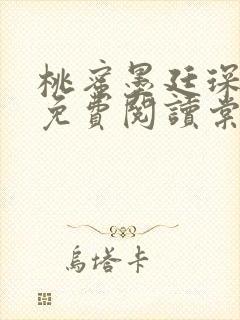 桃蜜墨廷深
免費閱讀棠
烏塔卡